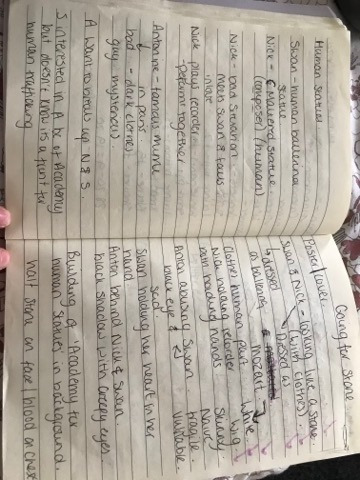 Human Statues
Swan - human ballerina
statue
Nick - statue.
(composer) (human)
Nick - bad situation
meets Swan & falls
in love
Nick plays recorder
-perform together
Antonine - famous mime
↓ in paris.
bad - dark clothes
guy mysterious.
A want to break up N & S.
S interested in A bc of Academy
but doesn't know is a front for
human trafficking
Going for Stone
Poster/Cover
Swan & Nick - looking like a stone.
(with clothes).
↳ dressed dressed as
as ballerina mozart → Wig
White
Clothes human part
Nick holding recorder Skinny
both holding hands Naive
fragile.
Vunrable.
Anton abusing Swan
black eye & sad.
Swan holding her heart in her
hand
Anton behind Nick & Swan.
black shadow with creepy eyes.
Building of 'Academy for
human statues' in background.
half stone on face / blood on chest